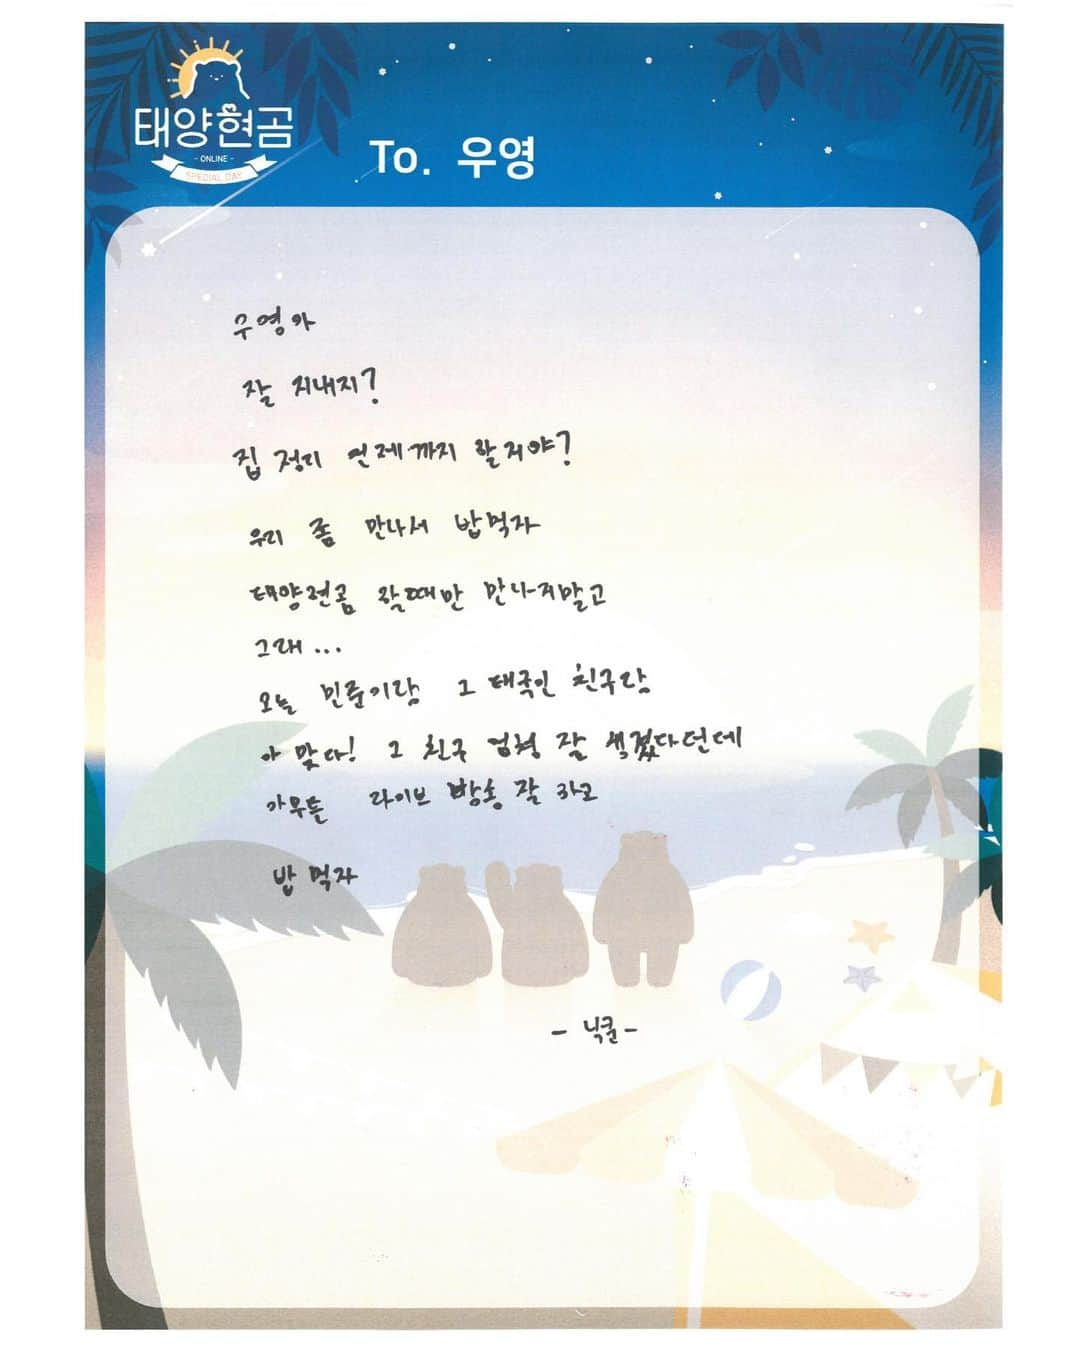 태양현곰
- ONLINE -
SPECIAL DAY
To. 우영
우영아
잘 지내지?
집 정리 언제까지 할거야?
우리 좀 만나서 밥먹자
태양현곰 할때만 만나지말고
그래...
오늘 민준이랑 그 태국인 친구랑
아 맞다! 그 친구 엄청 잘 생겼다던데
아무튼 라이브 방송 잘 하고
밥 먹자
- 닉쿤 -